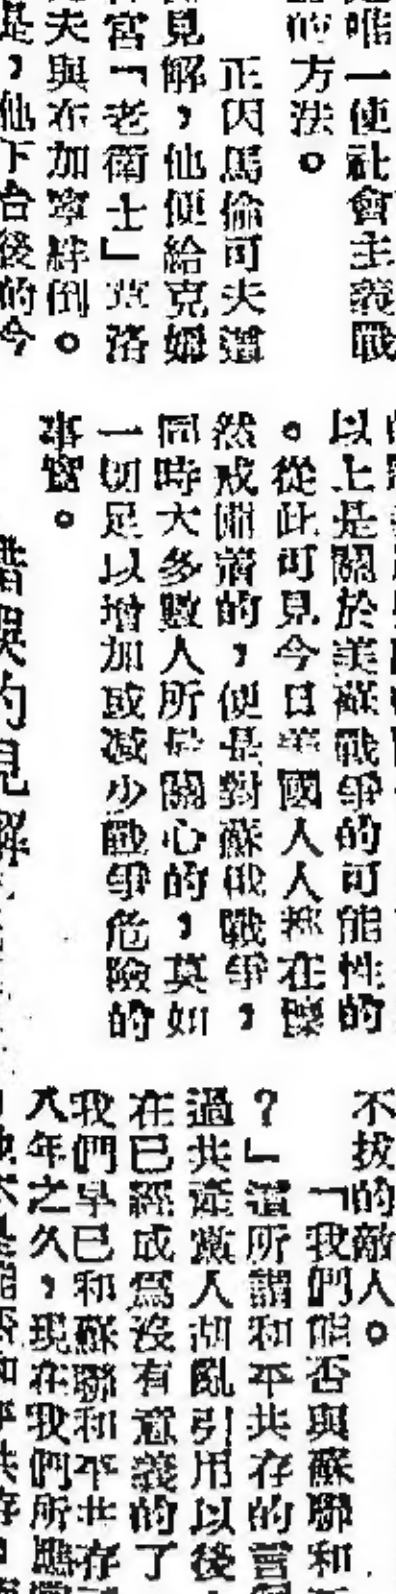 是唯一使社會主義戰
的方法。
正因馬倫可夫這
見解，他便給克姆
宮「老衛士」莫洛
夫與布加寧絆倒。
是，他下台後的今
以上是關於美蘇戰爭的可能性的
。從此可見今日美國人人都在懍
然戒備着的，便是對蘇俄戰爭，
同時大多數人所最關心的，莫如
一切足以增加或減少戰爭危險的
事實。
錯誤的見解
不拔的敵人。
「我們能否與蘇聯和
？」這所謂和平共存的
過共產黨人胡亂引用以後
在已經成爲沒有意義的了
我們早已和蘇聯和平共存
八年之久，現在我們所應